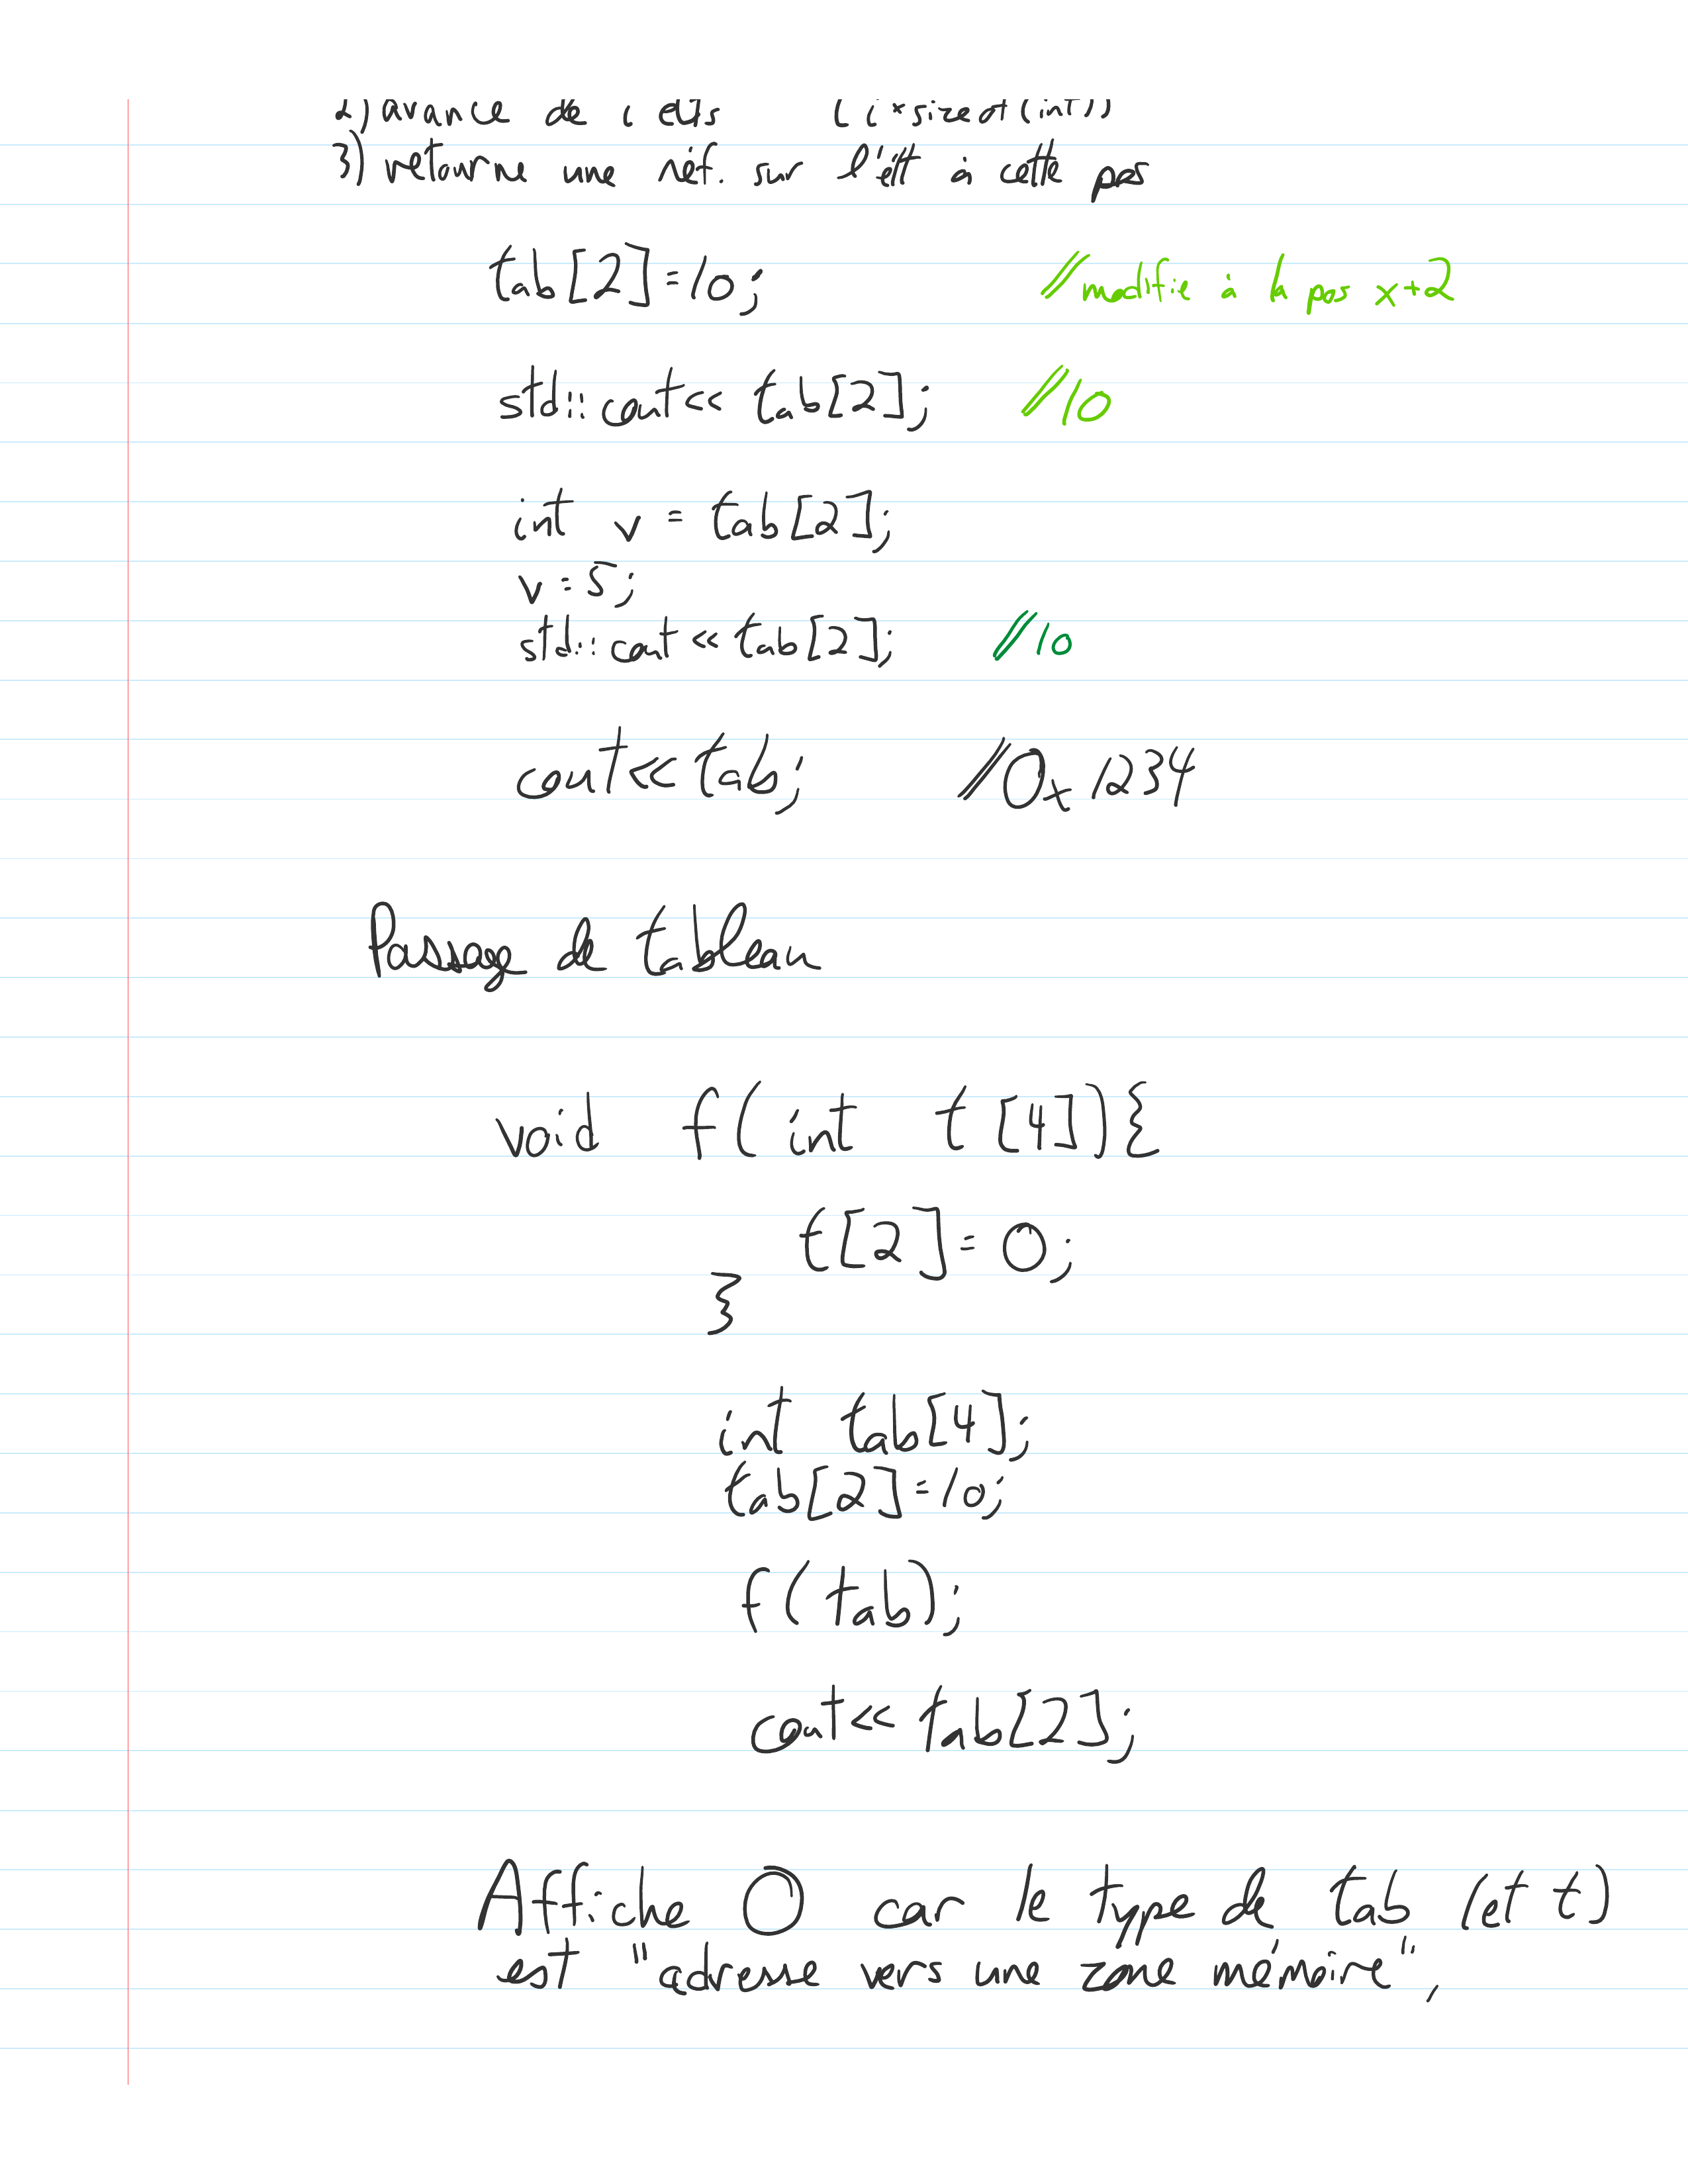 2) avance de i elts (i*sizeof(int))
3) retourne une réf. sur l'élt à cette pos
tab[2]=10; //modifie à la pos x+2
std::cout<< tab[2]; //10
int v = tab[2];
v=5;
std::cout << tab[2]; //10
cout<< tab; //0x1234
Passage de tableau
void f( int t [4]){
t[2]= 0;
}
int tab[4];
tab[2]=10;
f(tab);
cout<< tab[2];
Affiche 0 car le type de tab (et t)
est "adresse vers une zone mémoire",